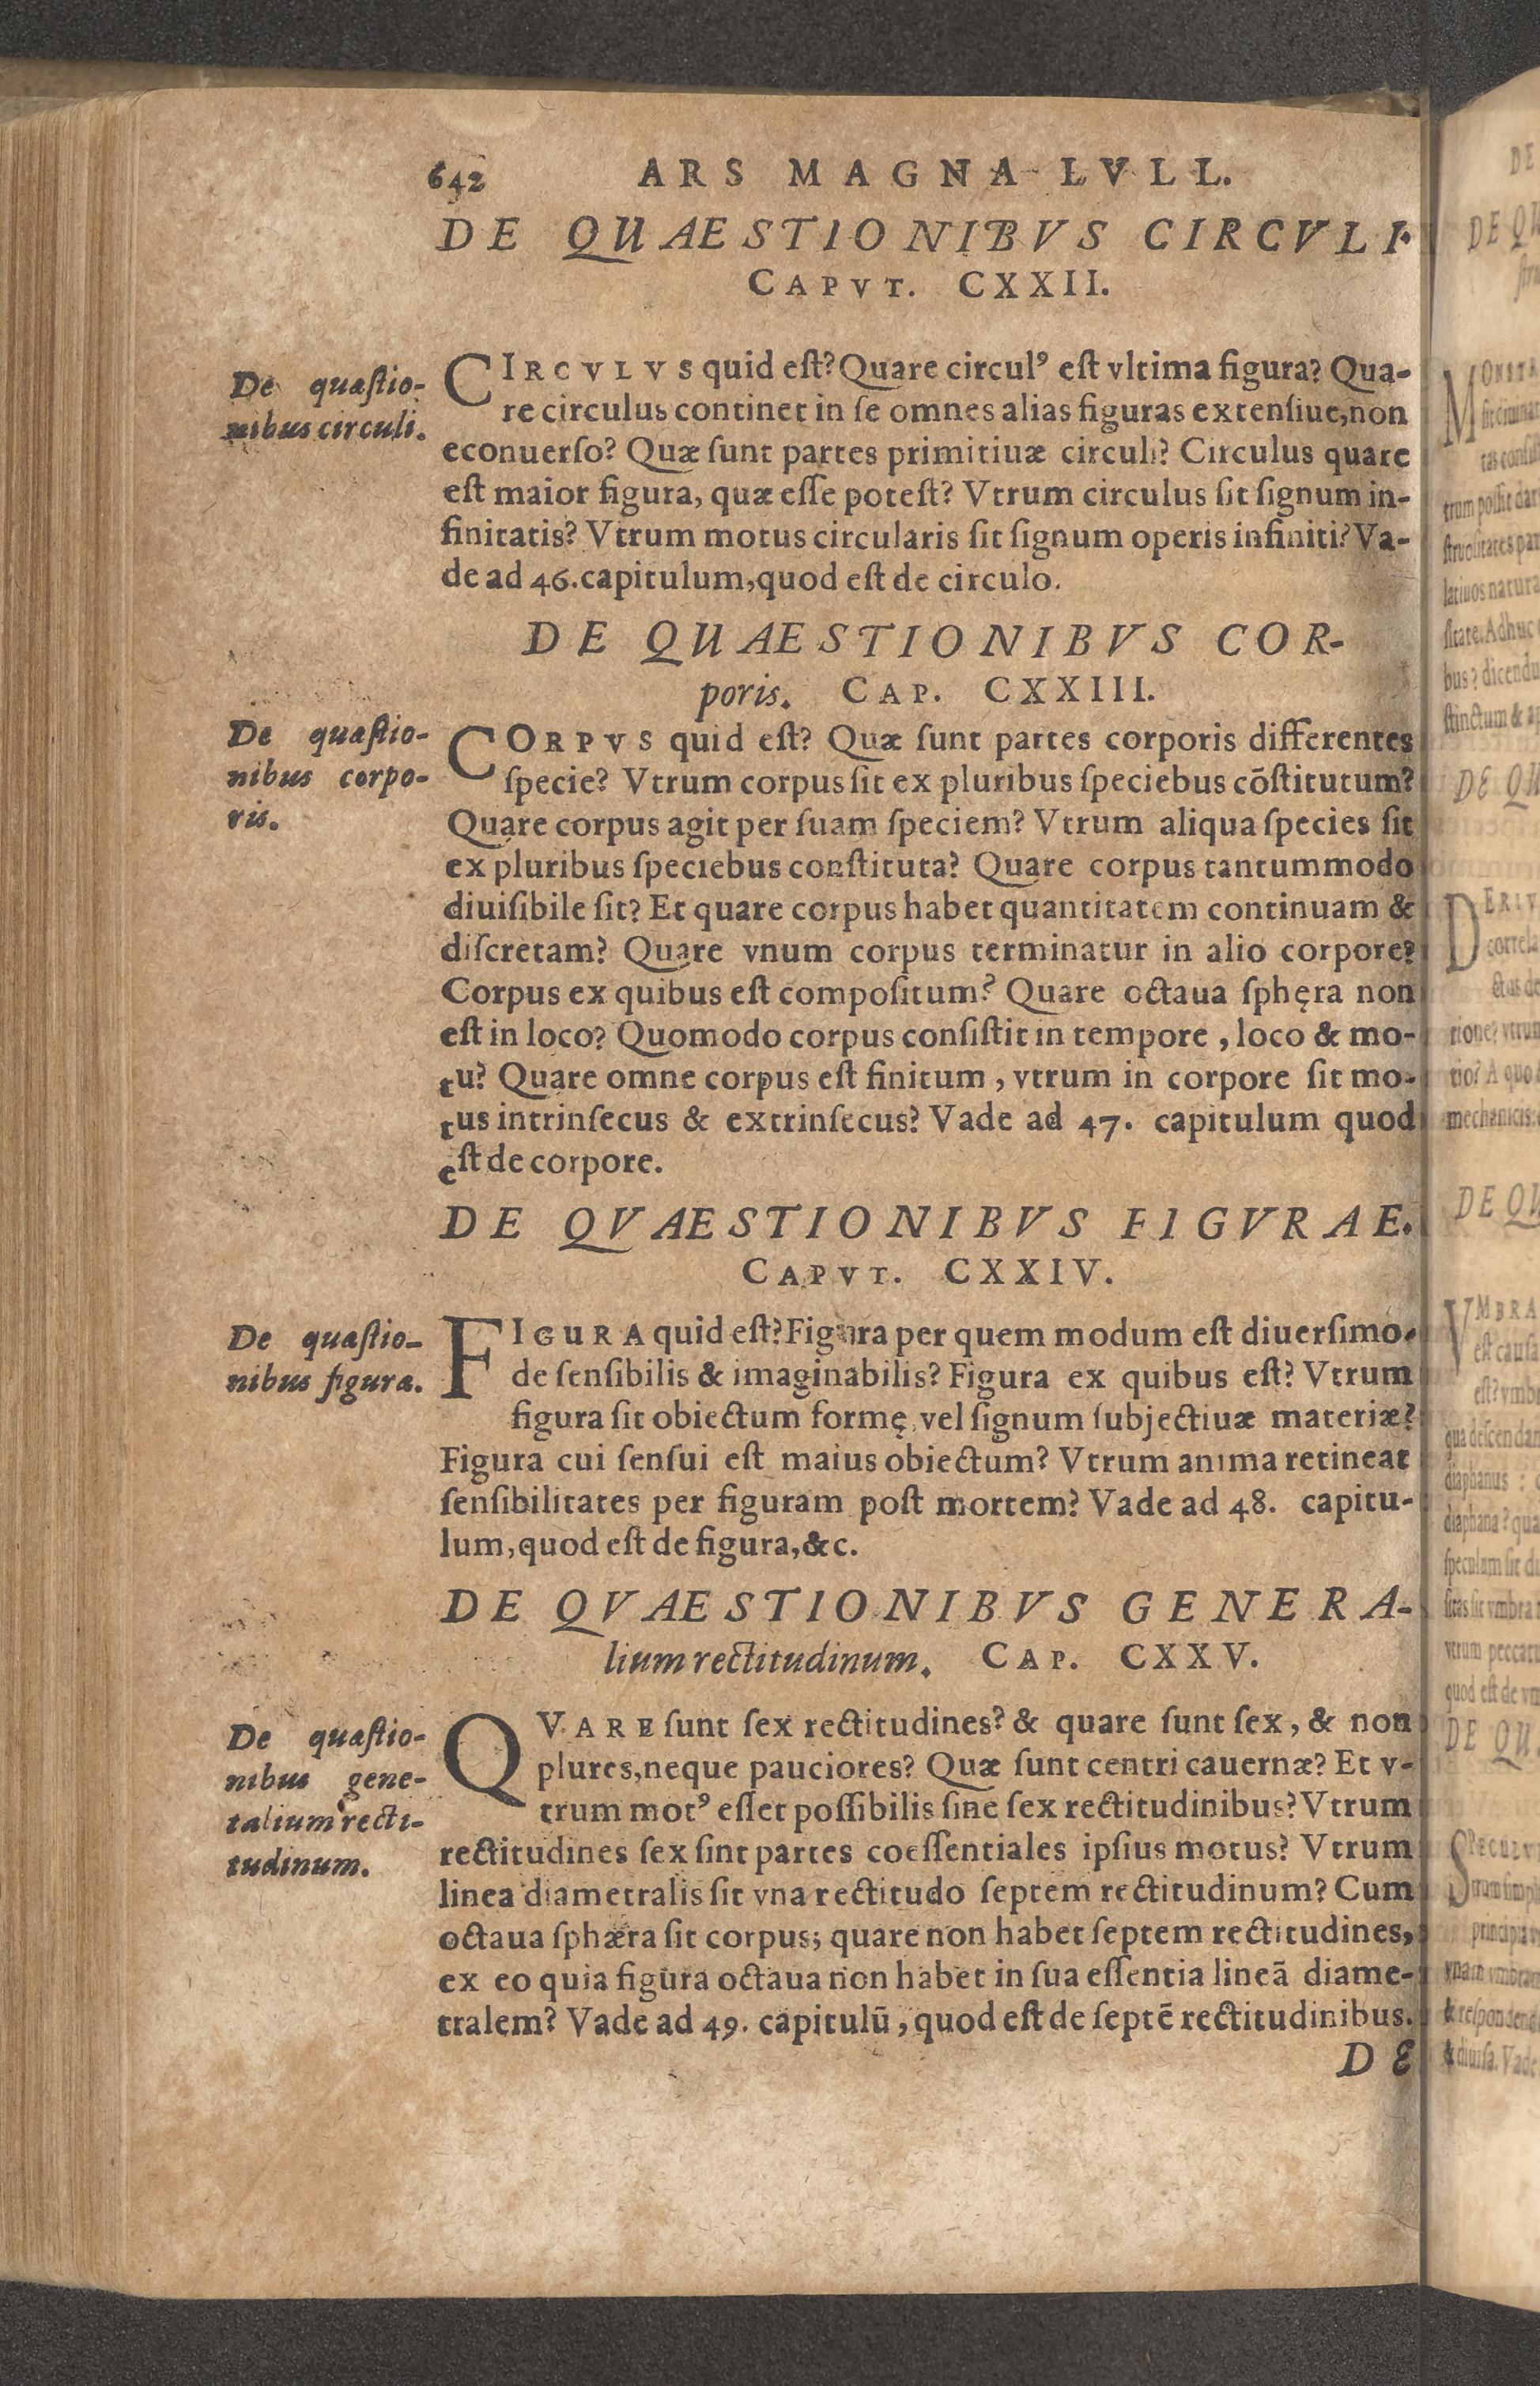 642 ARS MAGNA LVLL.
DE QUAESTIONIBVS CIRCVLI.
CAPVT. CXXII.
De quæſtio-
nibus circuli.
CIRCVLVS quid eſt? Quare circulꝰ eſt vltima figura? Qua-
re circulus continet in ſe omnes alias figuras extenſiue, non
econuerſo? Quæ ſunt partes primitiuæ circuli? Circulus quare
eſt maior figura, quæ eſſe poteſt? Vtrum circulus ſit ſignum in-
finitatis? Vtrum motus circularis ſit ſignum operis infiniti? Va-
de ad 46. capitulum, quod eſt de circulo.
DE QUAESTIONIBVS COR-
poris. CAP. CXXIII.
De quæſtio-
nibus corpo-
ris.
CORPVS quid eſt? Quæ ſunt partes corporis differentes
ſpecie? Vtrum corpus ſit ex pluribus ſpeciebus cōſtitutum?
Quare corpus agit per ſuam ſpeciem? Vtrum aliqua ſpecies ſit
ex pluribus ſpeciebus conſtituta? Quare corpus tantummodo
diuiſibile ſit? Et quare corpus habet quantitatem continuam &
diſcretam? Quare vnum corpus terminatur in alio corpore?
Corpus ex quibus eſt compoſitum? Quare octaua ſphęra non
eſt in loco? Quomodo corpus conſiſtit in tempore, loco & mo-
tu? Quare omne corpus eſt finitum, vtrum in corpore ſit mo-
tus intrinſecus & extrinſecus? Vade ad 47. capitulum quod
eſt de corpore.
DE QVAESTIONIBVS FIGVRAE.
CAPVT. CXXIV.
De quæſtio-
nibus figuræ.
FIGURA quid eſt? Figura per quem modum eſt diuerſimo-
de ſenſibilis & imaginabilis? Figura ex quibus eſt? Vtrum
figura ſit obiectum formę, vel ſignum ſubjectiuæ materiæ?
Figura cui ſenſui eſt maius obiectum? Vtrum anima retineat
ſenſibilitates per figuram poſt mortem? Vade ad 48. capitu-
lum, quod eſt de figura, &c.
DE QVAESTIONIBVS GENERA-
lium rectitudinum. CAP. CXXV.
De quæſtio-
nibus gene-
talium recti-
tudinum.
QVARE ſunt ſex rectitudines? & quare ſunt ſex, & non
plures, neque pauciores? Quæ ſunt centri cauernæ? Et v-
trum motꝰ eſſet poſſibilis ſine ſex rectitudinibus? Vtrum
rectitudines ſex ſint partes coeſſentiales ipſius motus? Vtrum
linea diametralis ſit vna rectitudo ſeptem rectitudinum? Cum
octaua ſphæra ſit corpus; quare non habet ſeptem rectitudines,
ex eo quia figura octaua non habet in ſua eſſentia lineā diame-
tralem? Vade ad 49. capitulū, quod eſt de ſeptē rectitudinibus.
DE